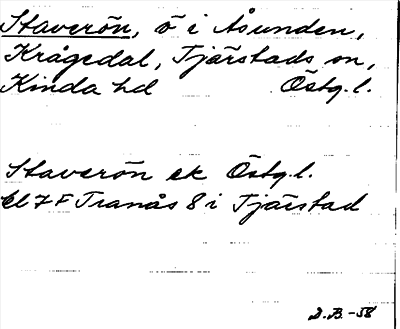 Staverön, ö i Åsunden,
Krågedal, Tjärstads sn,
Kinda hd Östg.l.
Staverön ek Östg.l.
bl 7 F Tranås 8 i Tjärstad
D.B.-58